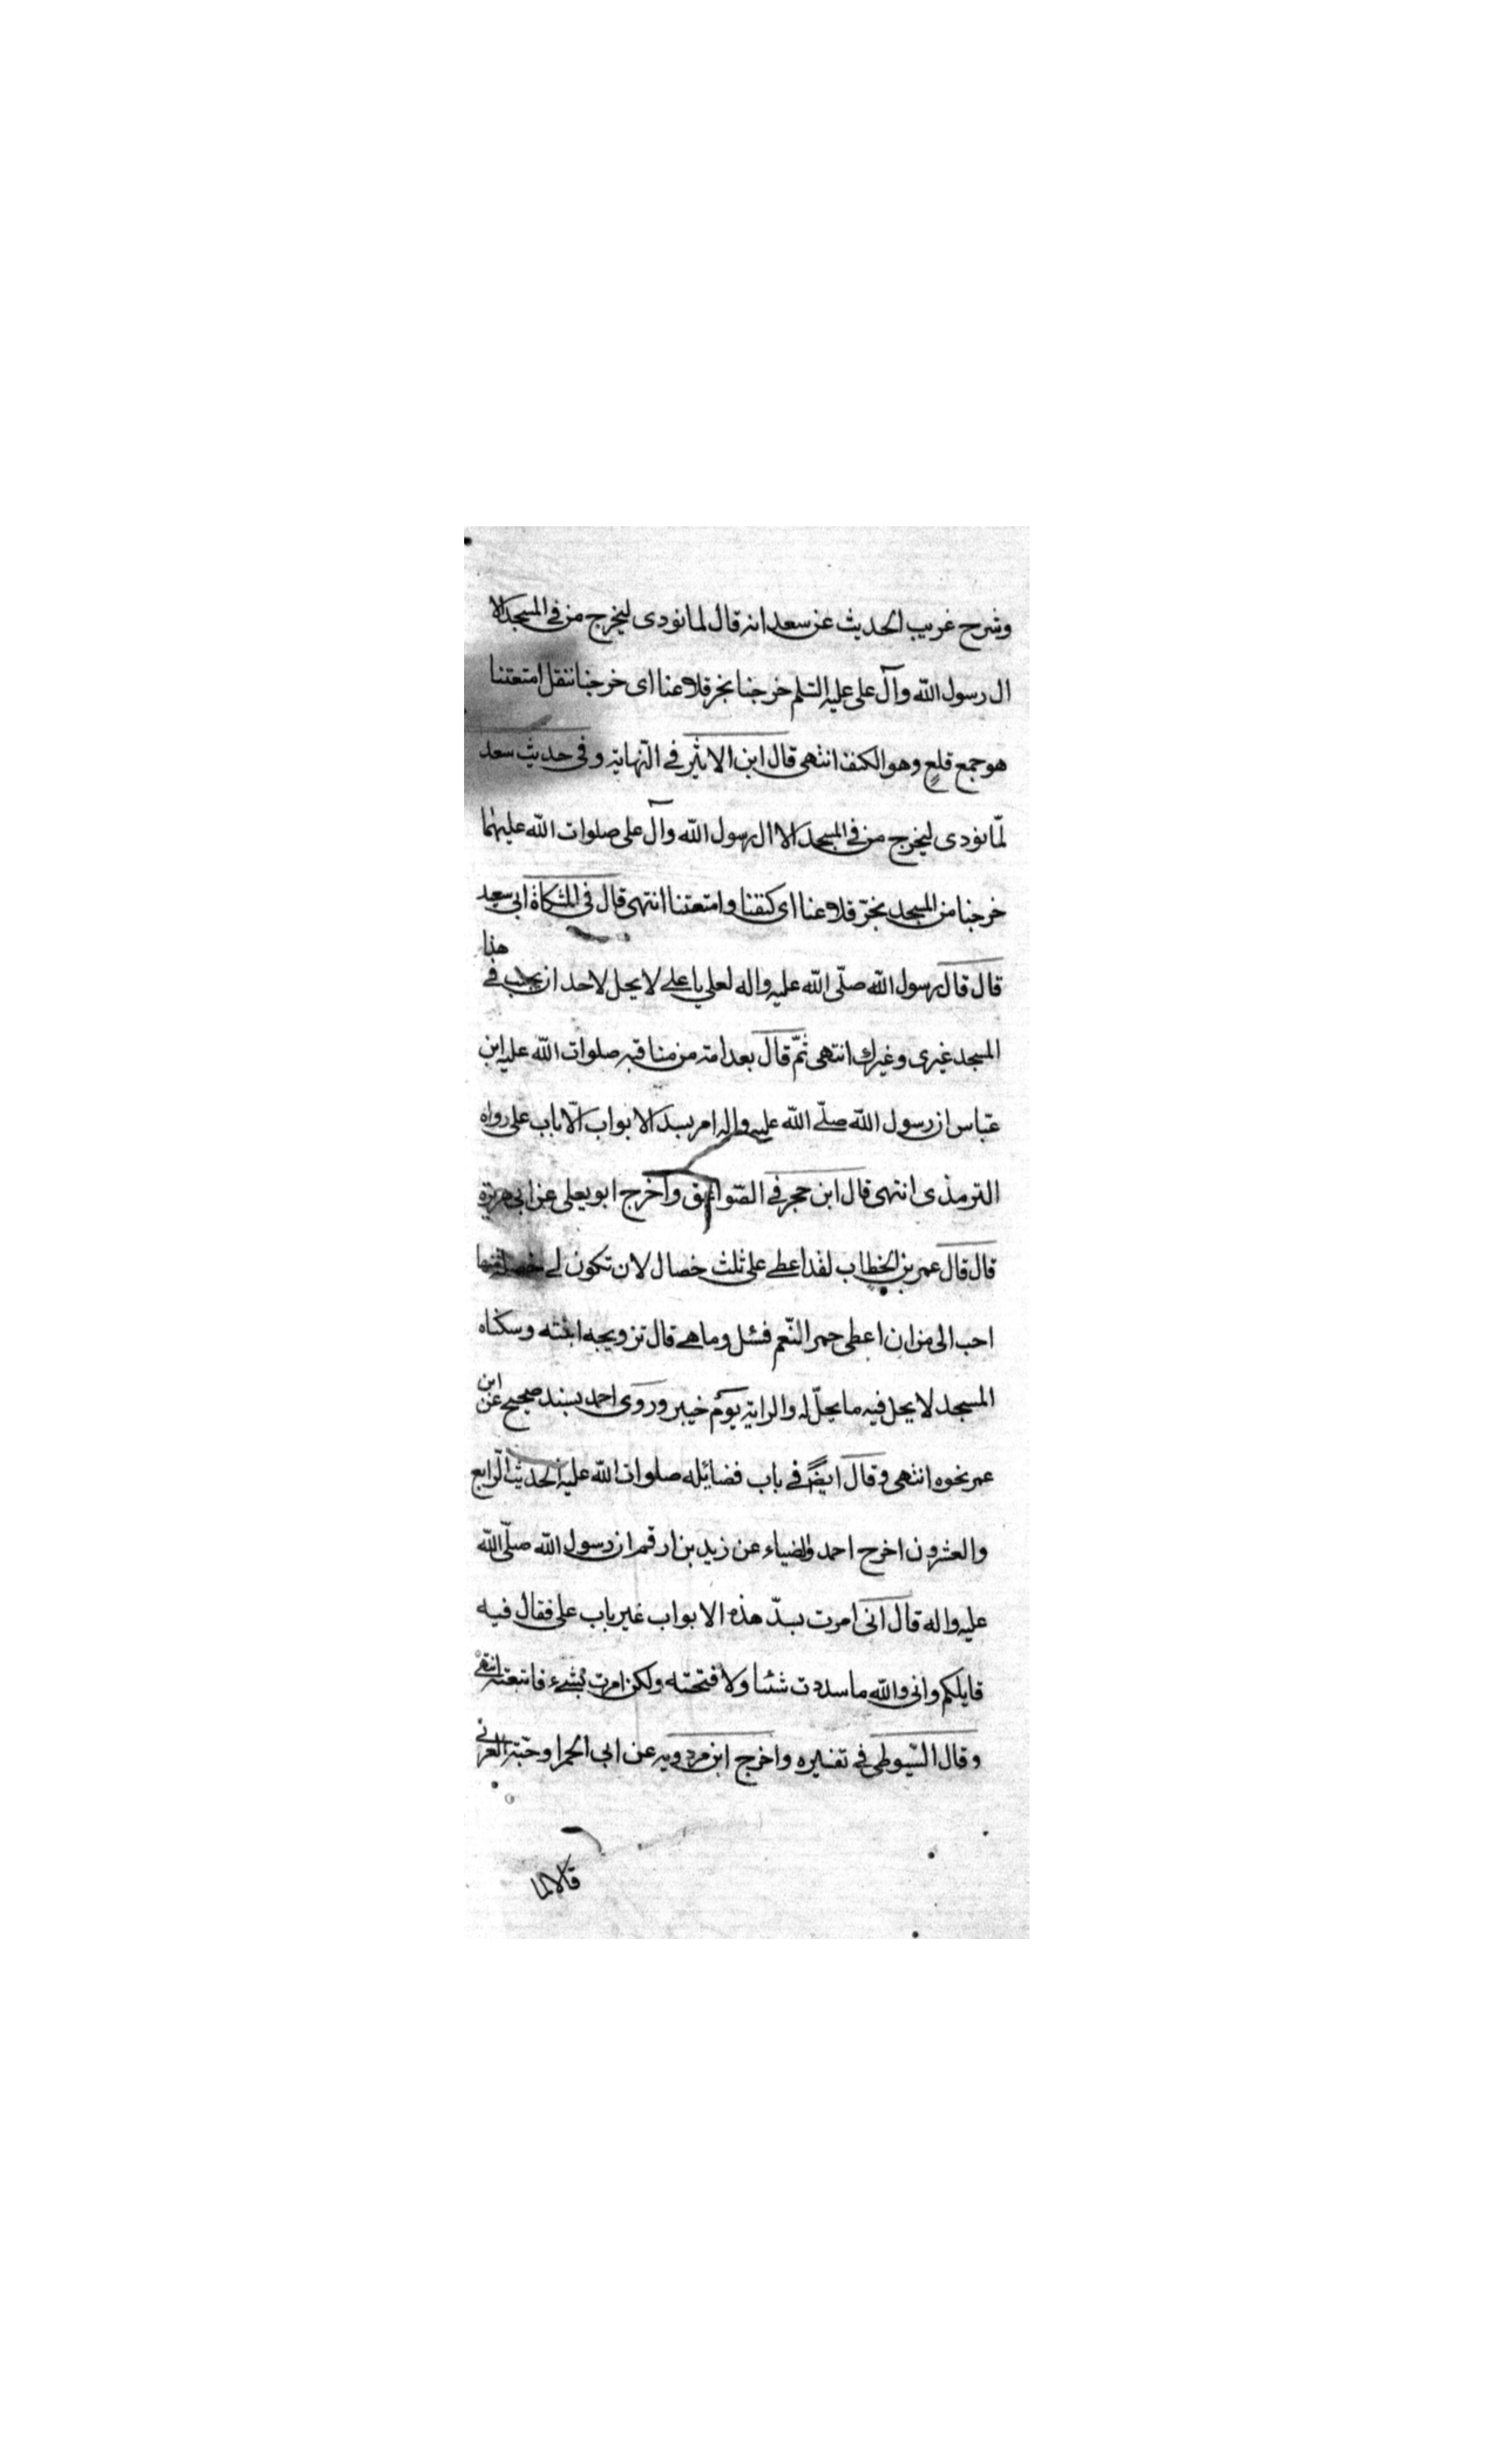 وشرح غريب الحديث عن سعد انه قال لما نودى ليخرج من فى المسجد الا
ال رسول الله وآل على عليه السّلم خرجنا نجر قلاعنا اى خرجنا ننقل امتعتنا
هو جمع قلعٍ وهو الكنف انتهى قال ابن الاثير فے النّهاية وفى حديث سعد
لمّا نودى ليخرج من فى المسجد الا ال رسول الله وآل على صلوات الله عليهما
خرجنا من المسجد نجرّ قلاعنا اى كنفنا وامتعتنا انتهى قال فى المشكاة ابى سعد
قال قال رسول الله صلّى الله عليه واله لعلى يا علے لا يحل لاحد ان يجنب فے هذا
المسجد غيرى وغيرك انتهى ثمّ قال بعد امته من مناقبه صلوات الله عليه ابن
عبّاس ان رسول الله صلّے الله عليه واله امر بسد الابواب الّا باب على رواه
الترمذى انتهى قال ابن حجر فے الصّواعق واخرج ابو يعلى عن ابى هريرة
قال قال عمر بن الخطاب لقد اعطے على ثلث خصال لان تكون لے خصلة منها
احب الى من ان اعطى حمر النّعم فسئل وما هے قال تزويجه ابنته وسكناه
المسجد لا يحل فيه ما يحلّ له والراية يوم خيبر وروى احمد بسند صحيح عن ابن
عمر نحوه انتهى وقال ايضًا فے باب فضائله صلوات الله عليه الحديث الرّابع
والعشرون اخرج احمد والضياء عن زيد بن ارقم ان رسول الله صلّى الله
عليه واله قال انى امرت بسدّ هذه الابواب غير باب على فقال فيه
قايلكم وانى والله ما سددت شئا ولا فتحته ولكن امرت بشےء فاتبعته انتهى
وقال السّيوطى فے تفسيره واخرج ابن مردويه عن ابى الحمرا وحبّة العرنے
قالا لما